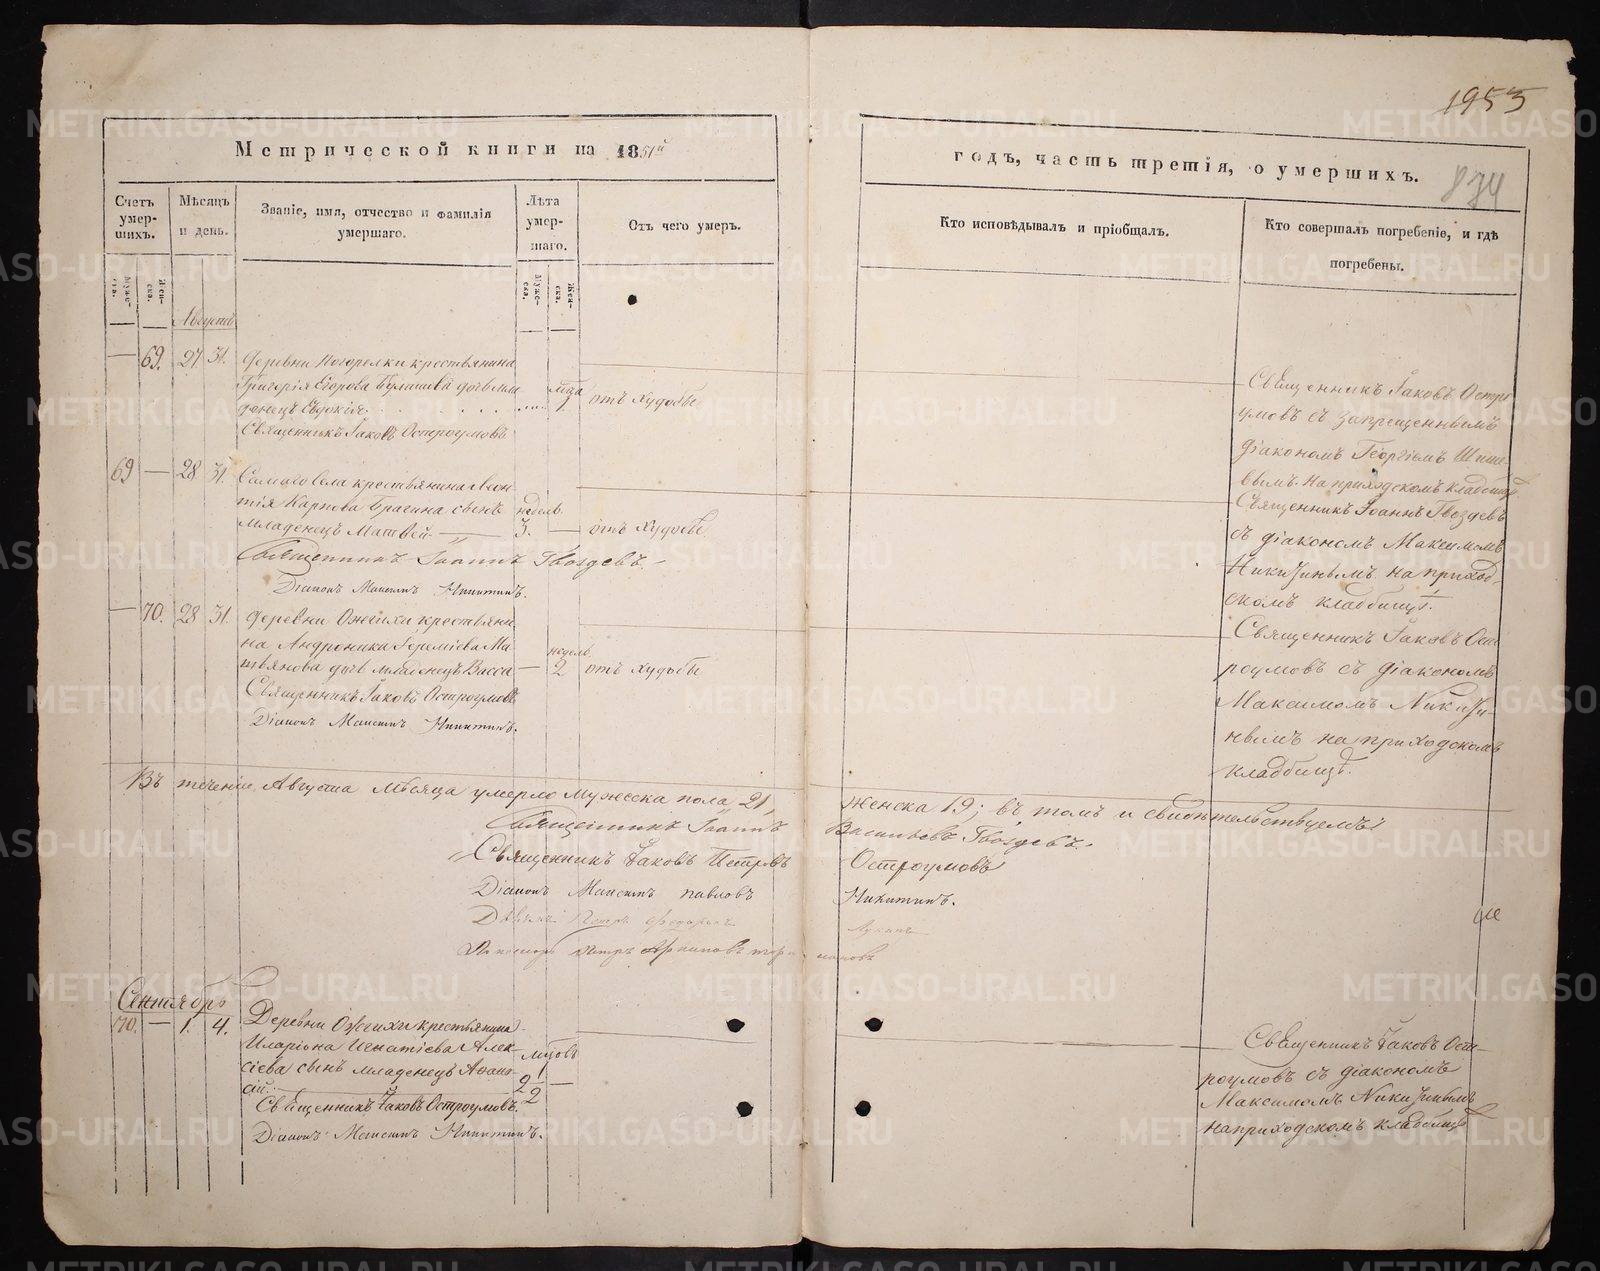 1955
834
Метрической книги на 1851й
годъ, часть третія, о умершихъ.
Счетъ умер-шихъ.
Мѣсяцъ и день.
Званіе, имя, отчество и фамилія умершаго.
Лѣта умер-шаго.
Отъ чего умеръ.
Кто исповѣдывалъ и пріобщалъ.
Кто совершалъ погребеніе, и гдѣ погребены.
Муже-ска.
Жен-ска.
Муже-ска.
Жен-ска.
Августъ
— 69. 27 31. Деревни Погорелки крестьянина
Григорія Егорова дочь мла
денецъ Евдокія
1 отъ худобы
Священникъ Іаковъ Остроумовъ
Священникъ Іаковъ Остро
умовъ съ запрещеннымъ
діакономъ Георгіемъ Шиш
вымъ на приходскомъ кладбищѣ
69 — 28 31. Самаго села крестьянина Леон
тія Карпова Брагина сынъ недель
младенецъ Матвей — 3. — отъ худобы
Священникъ Іоаннъ Гвоздевъ.
Діаконъ Максимъ Никитинъ.
Священникъ Іоаннъ Гвоздевъ
съ діакономъ Максимомъ
Никитинымъ на приход
скомъ кладбищѣ.
— 70. 28 31. Деревни Ожгихи крестьяни
на Андроника Іереміева Ма
тьянова дочь младенецъ Васса — недель 2 отъ худобы
Священникъ Іаковъ Остроумовъ
Діаконъ Максимъ Никитинъ.
Священникъ Іаковъ Ост
роумовъ съ діакономъ
Максимомъ Никити-
нымъ на приходскомъ
кладбищѣ.
Въ теченіи Августа мѣсяца умерло мужеска пола 21,
женска 19; въ томъ и свидѣтельствуемъ:
Священникъ Іоаннъ Васильевъ Гвоздевъ.
Священникъ Іаковъ Петровъ Остроумовъ
Діаконъ Максимъ Павловъ Никитинъ.
Сентябрь
70. — 1. 4. Деревни Ожгихи крестьянина
Иларіона Игнатіева Алек-
сіева сынъ младенецъ Афана-
сій. 2 1/2 —
Священникъ Іаковъ Остроумовъ.
Діаконъ Максимъ Никитинъ.
Священникъ Іаковъ Ост-
роумовъ съ діакономъ
Максимомъ Никитинымъ
на приходскомъ кладбищѣ
METRIKI.GASO-URAL.RU